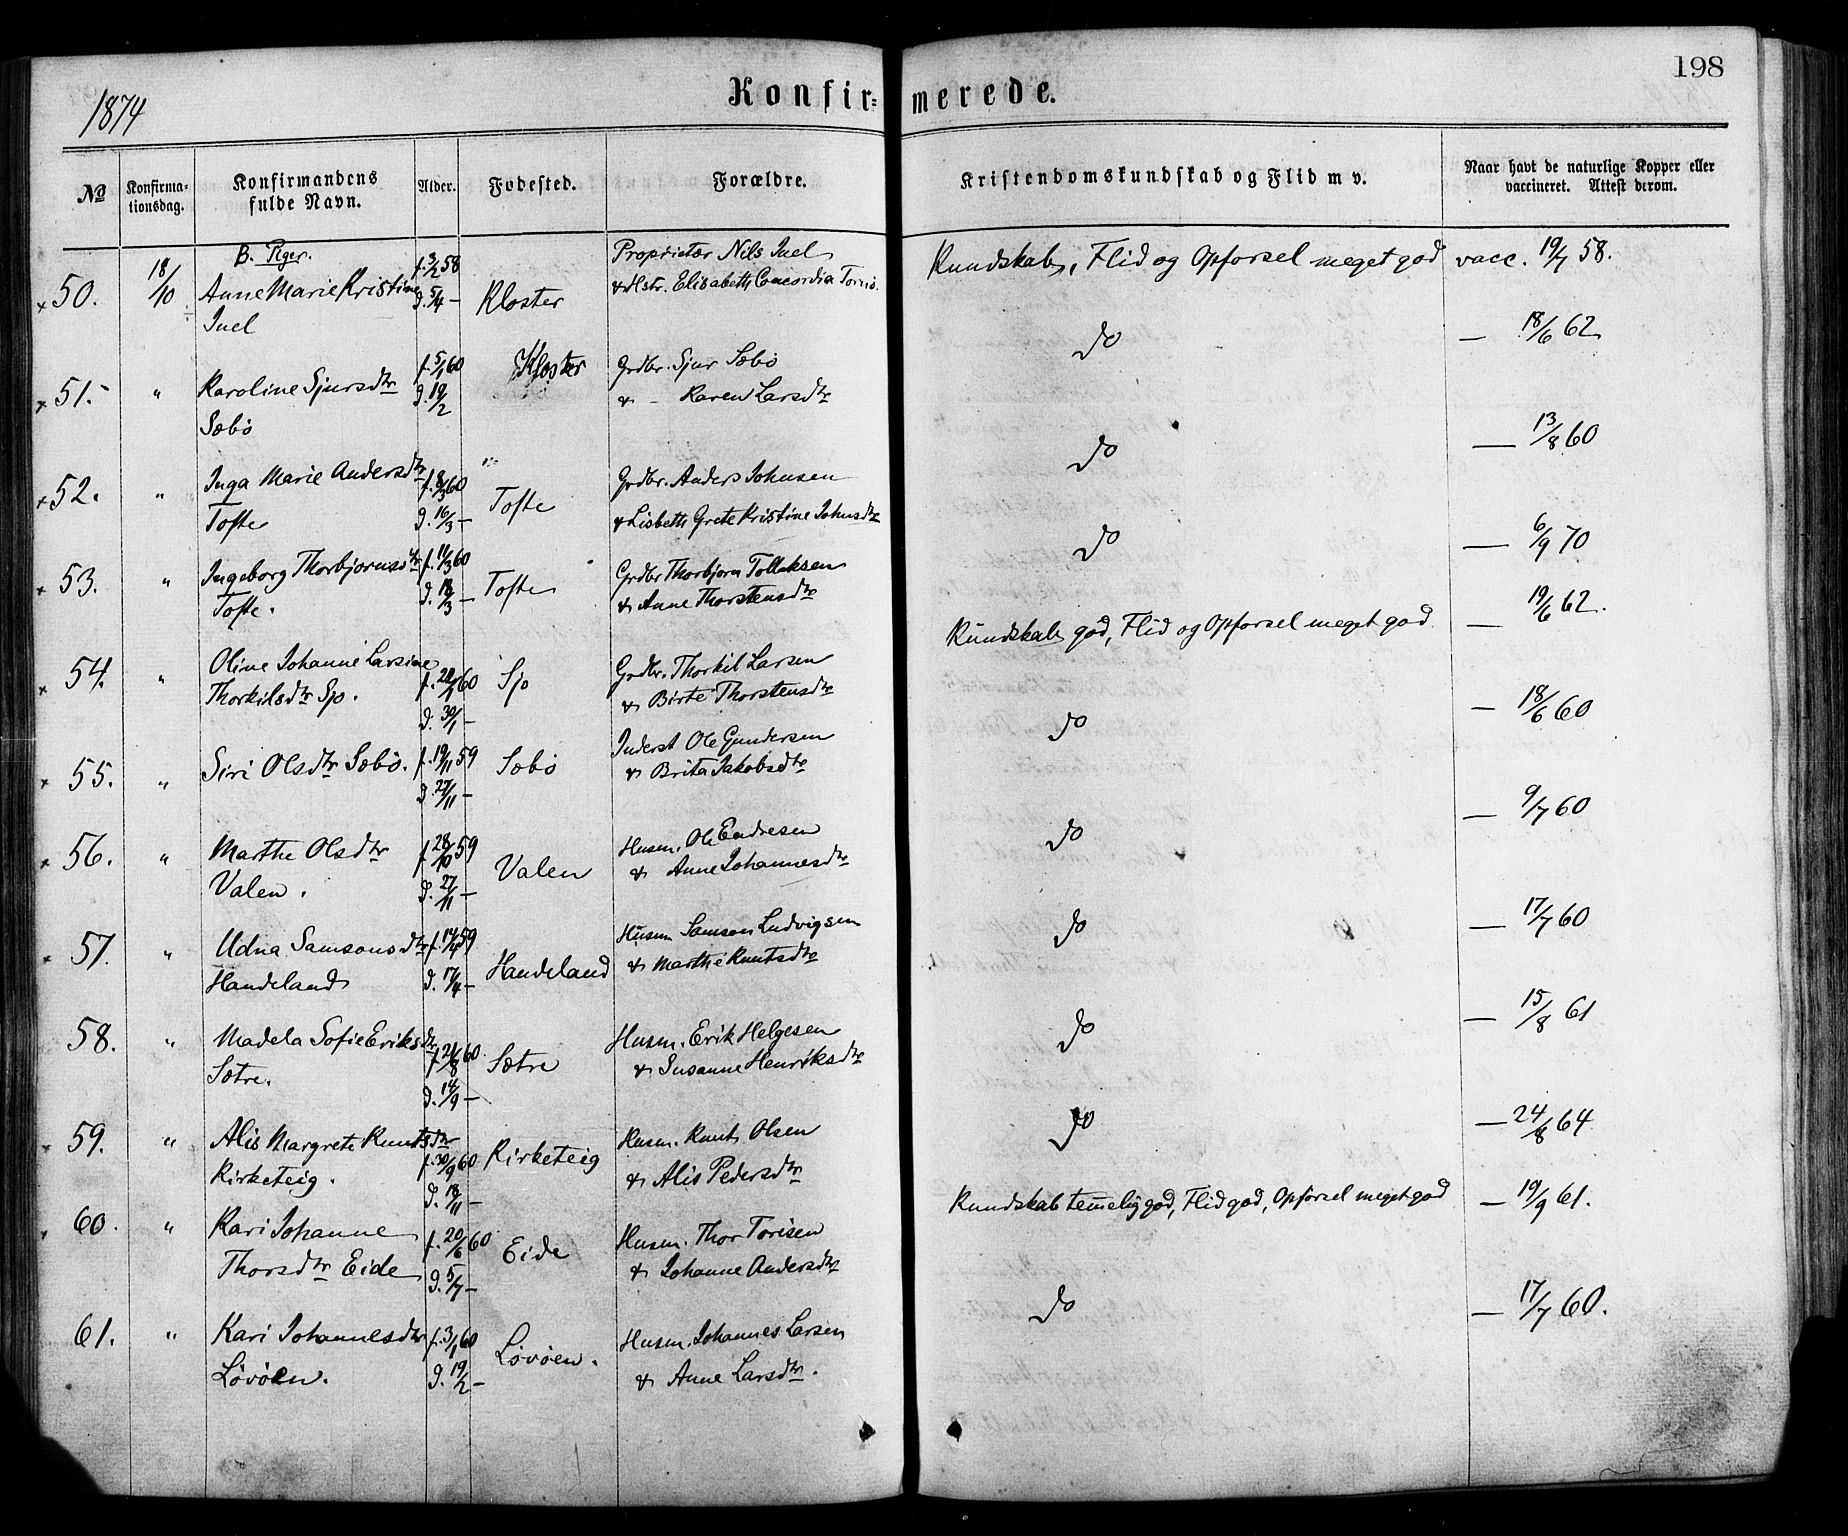 198
1874
Konfir= merede.
No
Konfirma-
tionsdag.
Konfirmandens
fulde Navn.
Alder.
Fødested.
Forældre.
Kristendomskundskab og Flid m v.
Naar havt de naturlige Kopper eller
vaccineret. Attest derom.
B. Piger.
50. 18/10 Anne Marie Kristine f. 3/2 58 Kloster Proprietær Nils Juel Kundskab, Flid og Opførsel meget god vacc. 19/7 58.
Juel d. 5/4 – & Hstr. Elisabeth Concordia
51. " Karoline Sjursdtr f. 5/1 60 Kloster Grdbr. Sjur Sæbø do — 18/6 62
Sæbø d. 19/2 & – Karen Larsdtr
52. " Inga Marie Andersdtr f. 8/3 60 Tofte Grdbr. Anders Johnsen do — 13/8 60
Tofte d. 16/3 – & Lisbeth Grete Kristine Johnsdtr
53. " Ingeborg Thorbjørnsdtr f. 11/3 60 Tofte Grdbr Thorbjørn Tollaksen do — 6/9 70
Tofte. d. 18/3 – & Anne Thorstensdtr
54. " Oline Johanne Larsine Sjo Grdbr. Thorkil Larsen Kundskab god, Flid og Opførsel meget god — 19/6 62.
Thorkilsdtr Sjo. 60 d. 30/1 – & Birte Thorstensdtr
55. " Siri Olsdtr Sæbø. f. 19/11 59 Sæbø Inderst Ole Gundersen do — 18/6 60
d. 27/11 – & Brita Jakobsdtr
56. " Marthe Olsdtr f. 28/10 59 Valen Husm. Ole Endresen do — 9/7 60
Valen. d. 27/11 – & Anne Johannesdtr
57. " Udna Samsonsdtr f. 14/4 59 Handeland Husm Samson Ludvigsen do — 17/7 60
Handeland d. 17/4 – & Marthe Knutsdtr
58. " Madela Sofie Eriksdtr f. 21/8 60 Sætre Husm. Erik Helgesen do — 15/8 61
Sætre. d. 14/9 – & Susanne Henriksdtr
59. " Alis Margrete Knutsdtr f. 30/9 60 Kirketeig Husm. Knut Olsen do — 24/8 64
Kirketeig. d. 18/11 – & Alis Pedersdtr
60. " Kari Johanne f. 20/6 60 Eide Husm. Thor Torisen Kundskab temmelig god, Flid god, Opførsel meget god — 19/9 61.
Thorsdtr Eide d. 5/7 – & Johanne Andersdtr
61. " Kari Johannesdtr f. 3/1 60 Løvøen. Husm. Johannes Larsen do — 17/7 60.
Løvøen. d. 19/2 – & Anne Larsdtr.